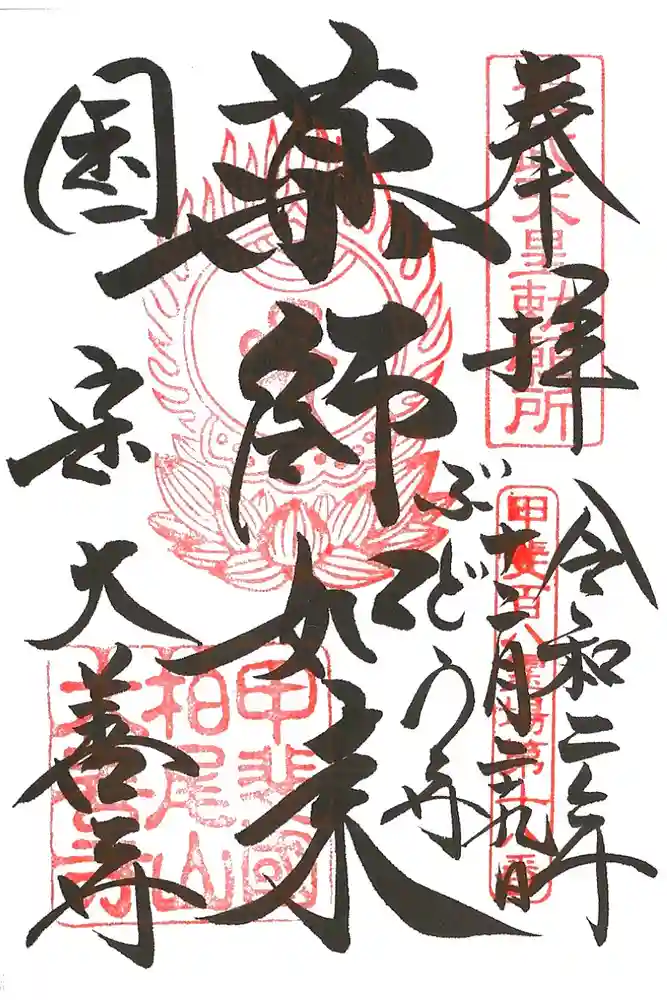 奉拝
聖武天皇勅願所
令和二年
十二月二九日
甲斐百八霊場第
ぶどう寺
薬師如来
国宝 大善寺
甲斐國
柏尾山
大善寺